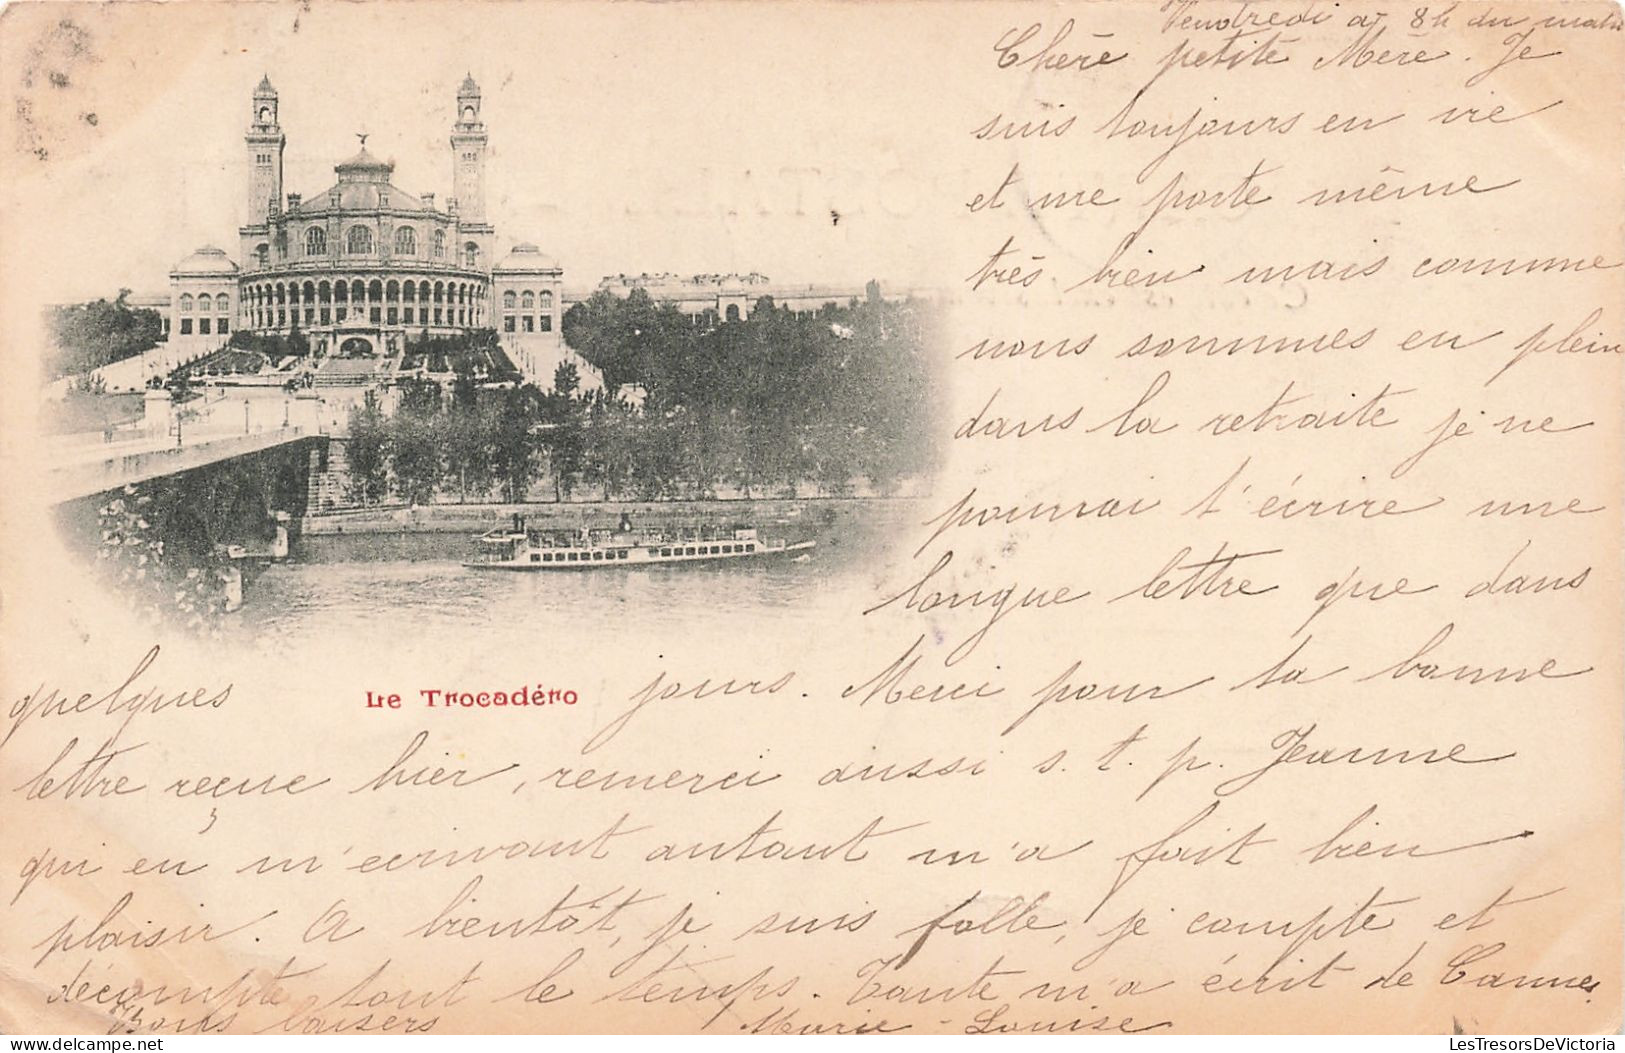 Vendredi à 8h du matin
Chère petite Mère. Je
suis toujours en vie
et me porte même
très bien mais comme
nous sommes en plein
dans la retraite je ne
pourrai t'écrire une
longue lettre que dans
quelques jours. Merci pour ta bonne
Le Trocadéro
lettre reçue hier, remerci aussi s. t. p. Jeanne
qui en m'ecrivant autant m'a fait bien
plaisir. A bientôt, je suis folle, je compte et
décompte tout le temps. Tante m'a écrit de Cannes.
Bons baisers Marie-Louise
LesTresorsDeVictoria
delcampe.net
LesTresorsDeVictoria